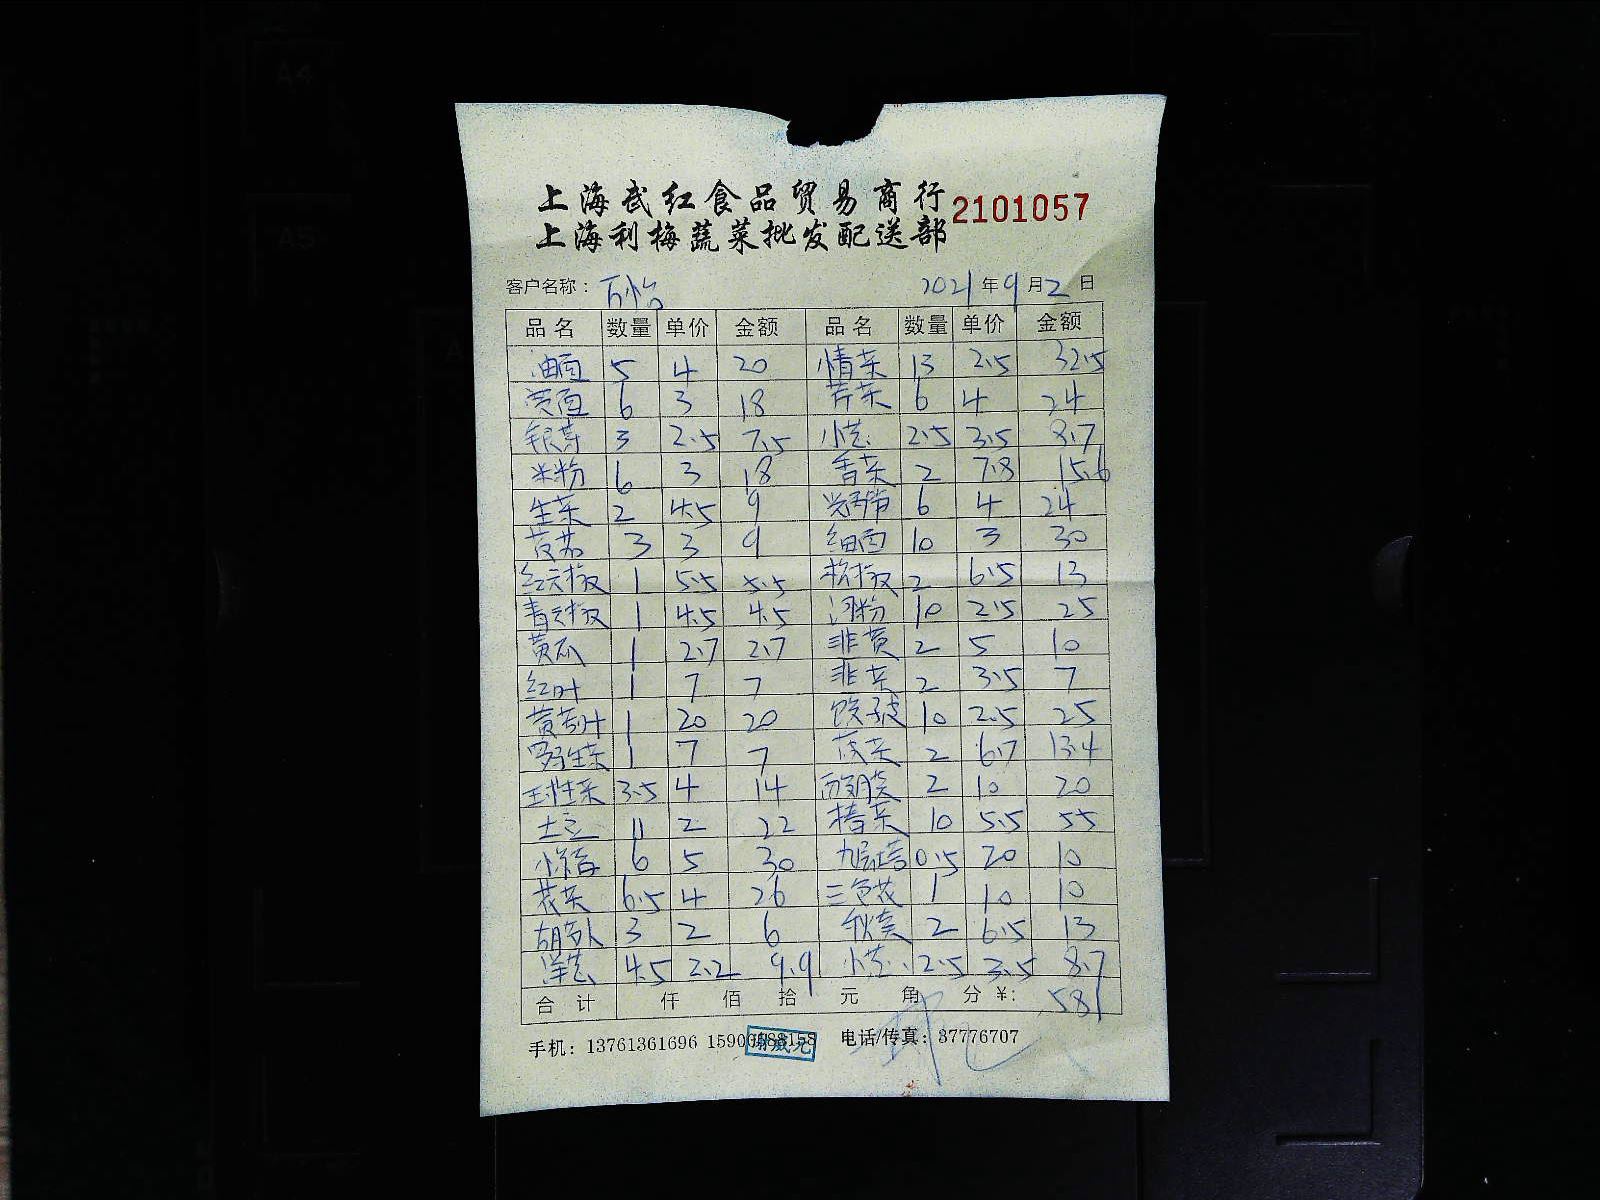 上海武红食品贸易商行
2101057
上海利梅蔬菜批发配送部
客户名称: 2021年9月2日
品名 数量 单价 金额 品名 数量 单价 金额
油面 5 4 20 13 2.5 32.5
6 3 18 芹菜 6 4 24
银芽 3 2.5 7.5 小葱 2.5 3.5 8.7
米粉 6 3 18 香菜 2 7.8 15.6
生菜 2 4.5 9 6 4 24
3 3 9 细面 10 3 30
红尖椒 1 5.5 5.5 杭椒 2 6.5 13
青尖椒 1 4.5 4.5 河粉 10 2.5 25
黄瓜 1 2.7 2.7 韭黄 2 5 10
红叶 1 7 7 韭菜 2 3.5 7
1 20 20 饺子皮 10 2.5 25
罗马生菜 1 7 7 菠菜 2 6.7 13.4
3.5 4 14 2 10 20
土豆 11 2 22 10 5.5 55
6 5 30 九层塔 0.5 20 10
花菜 6.5 4 26 三色花 1 10 10
胡萝卜 3 2 6 秋葵 2 6.5 13
洋葱 4.5 2.2 9.9 小葱 2.5 3.5 8.7
合计 仟 佰 拾 元 角 分 ¥: 581
手机: 13761361696 电话/传真: 37776707